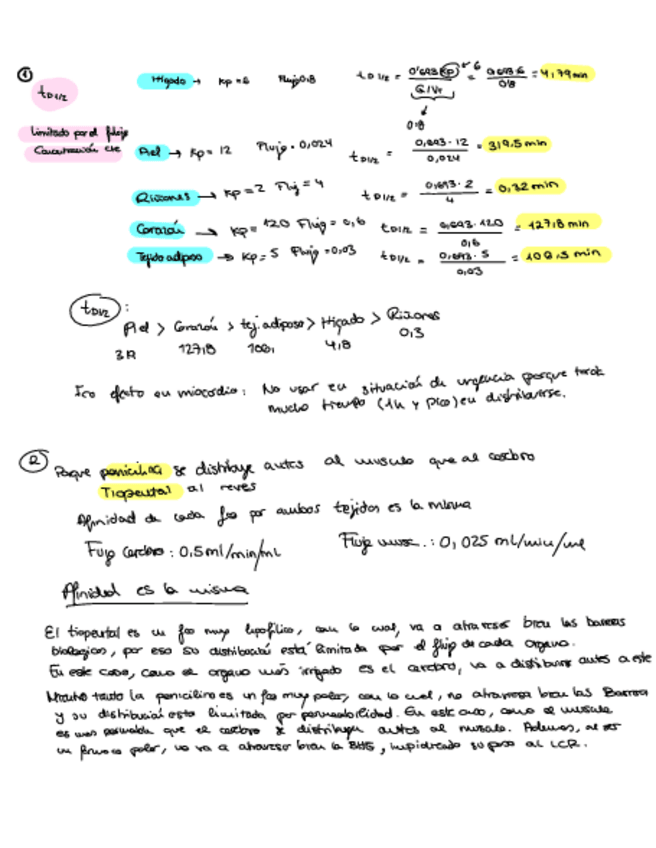 ①
tD1/2
limitado por el flujo
Concentración cte
Hígado → Kp = 6 Flujo 0,8 tD1/2 = 0,693·Kp / Q/Vt = 0,693·6 / 0,8 = 4,79 min
6
0,8
Piel → Kp = 12 Flujo = 0,024 tD1/2 = 0,693·12 / 0,024 = 319,5 min
Riñones → Kp = 2 Fluj = 4 tD1/2 = 0,693·2 / 4 = 0,32 min
Corazón → Kp = 120 Flujo = 0,6 tD1/2 = 0,693·120 / 0,6 = 127,8 min
Tejido adiposo → Kp = 5 Flujo = 0,03 tD1/2 = 0,693·5 / 0,03 = 108,5 min
tD1/2 :
Piel > Corazón > tej. adiposo > Hígado > Riñones
127,8 4,8 0,3
efecto en miocardio: No usar en situación de urgencia porque tarda
mucho tiempo (1h y pico) en distribuirse.
②
Porque penicilina se distribuye antes al musculo que al cerebro
Tiopental al reves
Afinidad de cada fco por ambos tejidos es la misma
Flujo cerebro: 0,5 ml/min/mL Flujo musc.: 0,025 ml/min/ml
Afinidad es la misma
El tiopental es un fco muy lipofílico, con lo cual, va a atravesar bien las barreras
biologicas, por eso su distribución está limitada por el flujo de cada organo.
En este caso, como el organo más irrigado es el cerebro, va a distribuirse antes a este
Mientras tanto la penicilina es un fco muy polar, con lo cual, no atraviesa bien las Barreras
y su distribución esta limitada por permeabilidad. En este caso, como el musculo
es mas permeable que el cerebro se distribuye antes al musculo. Ademas, al ser
un farmaco polar, no va a atravesar bien la BHE, impidiendo su paso al LCR.